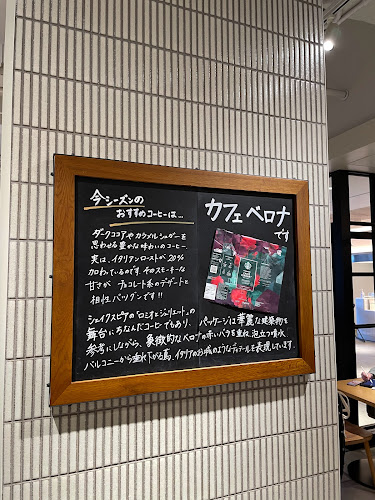 今シーズンの
おすすめコーヒーは…
カフェ ベロナ
です
ダークココアやカラメルシュガーを
思わせる豊かな味わいのコーヒー。
実は、イタリアンローストが20%
加わっているのです。そのスモーキーな
甘さが チョコレート系のデザートと
相性バツグンです!!
シェイクスピアの「ロミオとジュリエット」の
舞台にちなんだコーヒーでもあり、パッケージは華麗な建築物を
参考にしながら、象徴的なベロナの赤いバラを重ね、泡立つ噴水、
バルコニーから垂れ下がる蔦、イタリアのお城のようなディテールを表現しています。